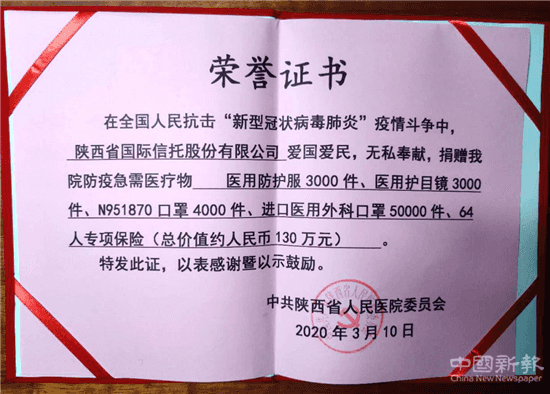 荣誉证书
在全国人民抗击“新型冠状病毒肺炎”疫情斗争中，
陕西省国际信托股份有限公司 爱国爱民，无私奉献，捐赠我
院防疫急需医疗物 医用防护服3000件、医用护目镜3000
件、N951870口罩4000件、进口医用外科口罩50000件、64
人专项保险（总价值约人民币130万元） 。
特发此证，以表感谢暨以示鼓励。
中共陕西省人民医院委员会
2020年3月10日
中國新報
China New Newspaper